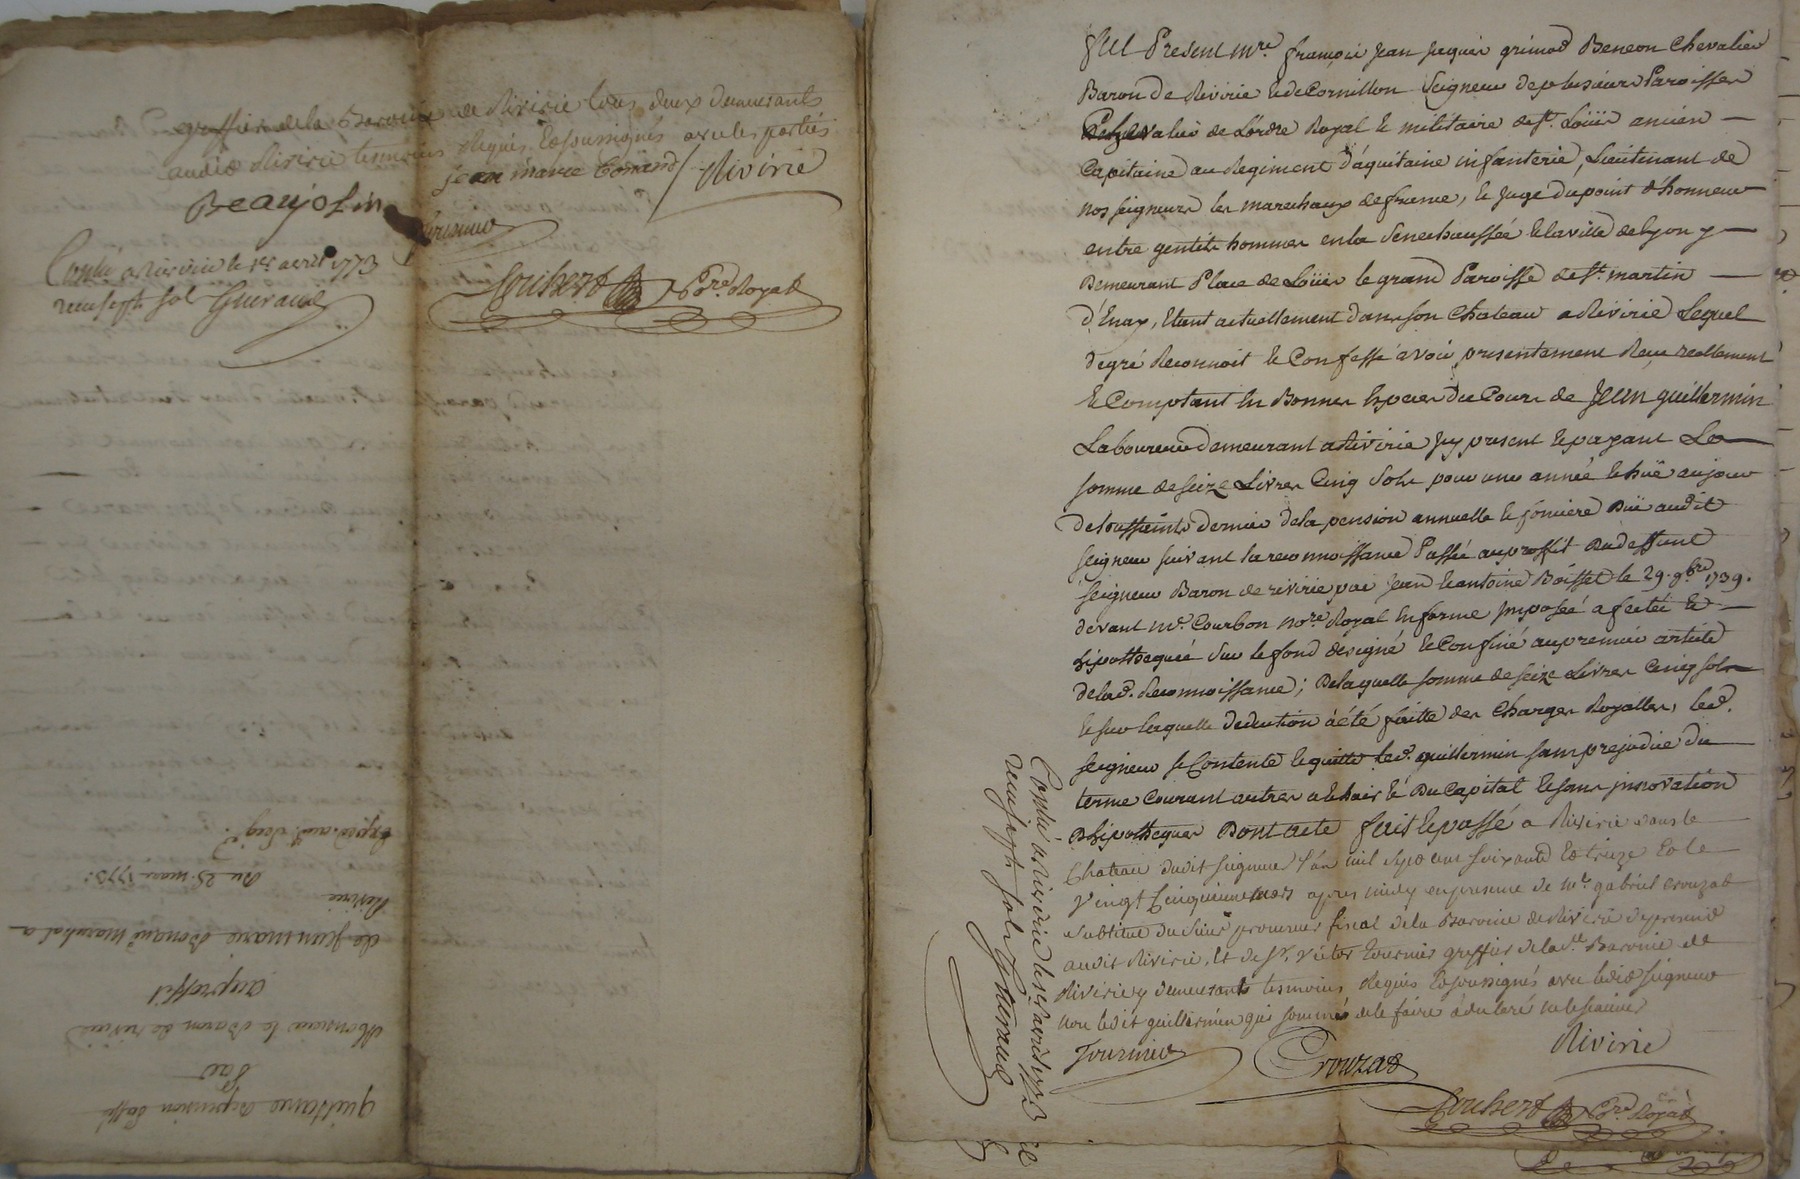 greffier de la Baronie de Rivirie tous deux demeurants
audit Rivirie temoins Requis Et soussignés avec les parties
Beaujolin
jean marie Bonand / Rivirie
fournier
Joubert No.re Royal
Conllé a Rivirie le 1er avril 1773
recu sept sol Gueraud
quittance de pension passé
Par
Monsieur le Baron de rivirie
au proffit
de jean marie Bonand marechal a
Rivirie
Du 25. mars 1773.
Exped. aud. Seig.r
fut Present m.re françois jean jacques grimod Beneon Chevalier
Baron De Rivirie et de Cornillon Seigneur de plusieurs Paroisses
Chevalier de L'ordre Royal et militaire de S.t Loüis ancien
Capitaine au Regiment d'aquitaine infanterie, Lieutenant de
nos seigneurs les marechaux de france, et juge du point d'honneur
entre gentils hommes en la Senechaussée et la ville de lyon y
Demeurant Place de Loüis le grand Paroisse de S.t martin
d'Enay, Etant actuellement dans son Chateau a Rivirie Lequel
de gré Reconnoit et Confesse avoir presentement Recu reellement
et Comptant En Bonnes Especes du Cours de Jean guillermin
Laboureur demeurant a Rivirie jcy present et payant La
somme de seize Livres Cinq Sols pour une année Echuë au jour
de toussaints dernier de la pension annuelle et fonciere Düe audit
seigneur suivant la reconnoissance Passée au proffit Du deffunt
seigneur Baron de rivirie par jean et antoine Boisset le 29. 9.bre 1739.
devant m.e Courbon no.re Royal En forme jmposée afectée et
hipothequée Sur le fond designé et Confiné au premier article
de lad. Reconnoissance; De laquelle somme de seize Livres Cinq sols
et sur laquelle deduction a été faitte des Charges Royalles, led.
seigneur se Contente et quitte led. guillermin sans prejudice du
terme Courant autres a Echoir et Du Capital et sans jnnovation
D'hipotheques Dont acte fait et passé a Rivirie dans le
Chateau dudit seigneur l'an mil sept cent soixante et treize et le
vingt cinquieme mars apres midy en presence de m.e gabriel Crouzat
substitut du sieur procureur fiscal de la Baronie de Rivirie
audit Rivirie, Et de S.r victor fournier greffier de lad.e Baronie de
Rivirie y demeurants temoins Requis Et soussignés avec ledit seigneur
non ledit guillermin qui sommé de le faire a declaré ne le scavoir
fournier
Crouzat
Rivirie
Joubert No.re Royal
Conllé a Rivirie le 1er avril 1773
recu sept sols Gueraud